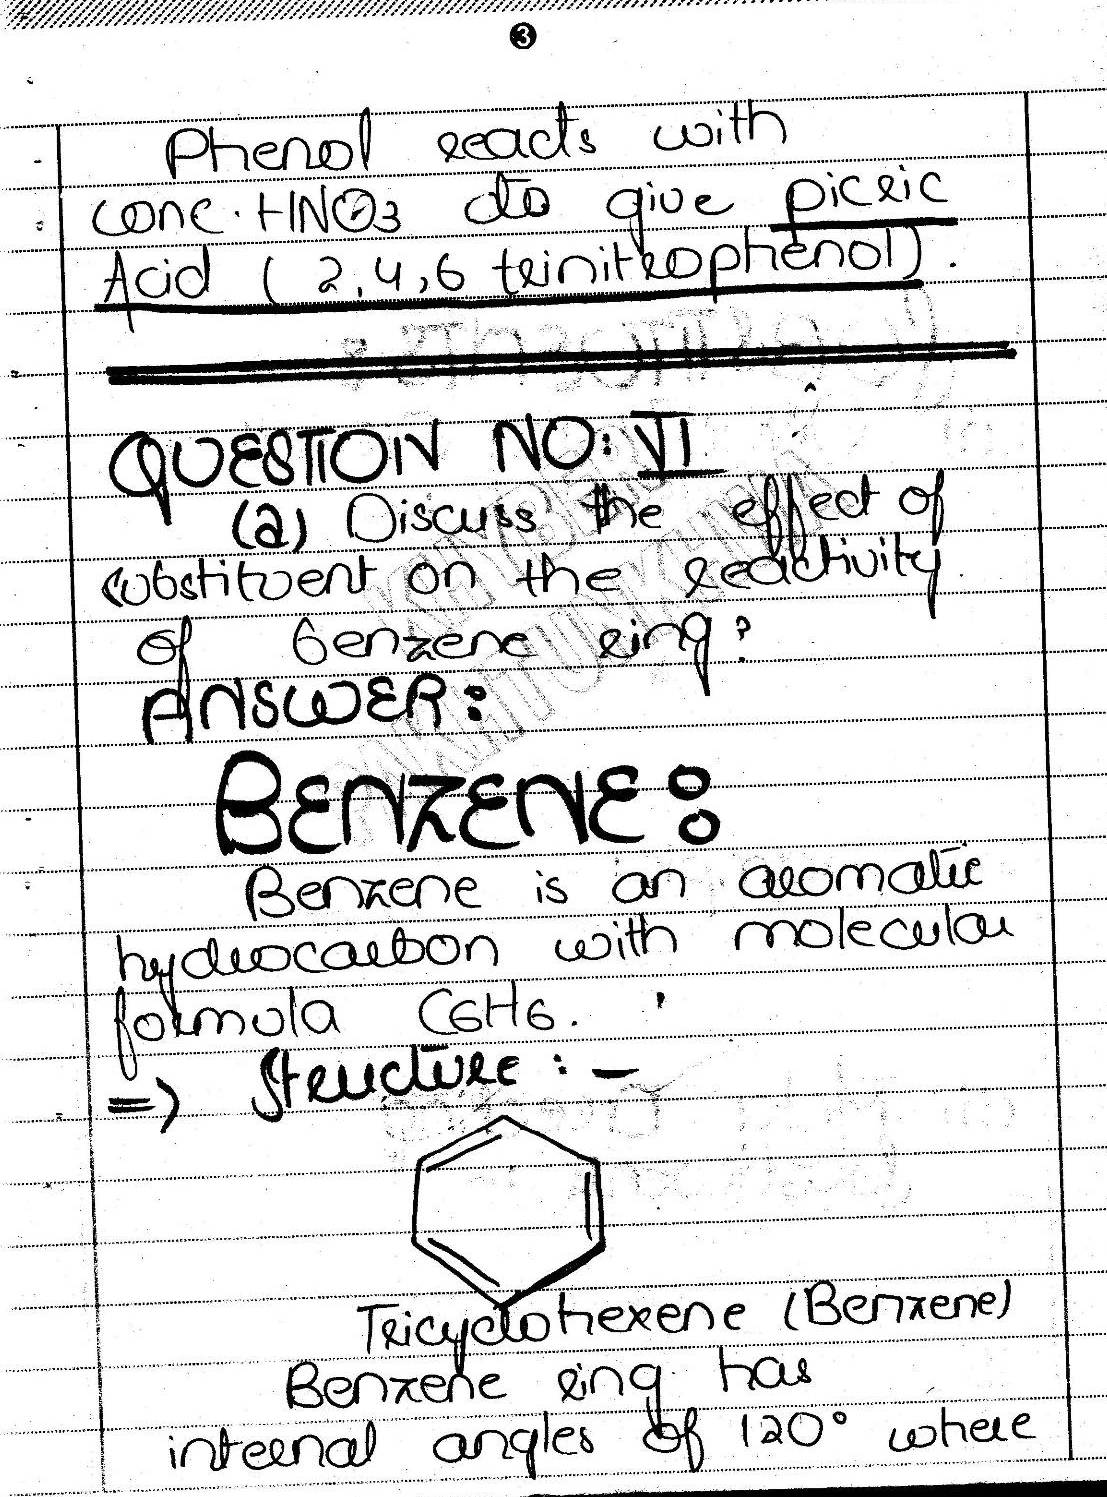 3
Phenol reacts with
conc. HNO3 to give picric
Acid ( 2,4,6 trinitrophenol).
QUESTION NO: VI
(a) Discuss the effect of
substituent on the reactivity
of benzene ring?
ANSWER:
BENZENE:
Benzene is an aromatic
hydrocarbon with molecular
formula C6H6.
=> Structure : -
Tricyclohexene (Benzene)
Benzene ring has
internal angles of 120° where